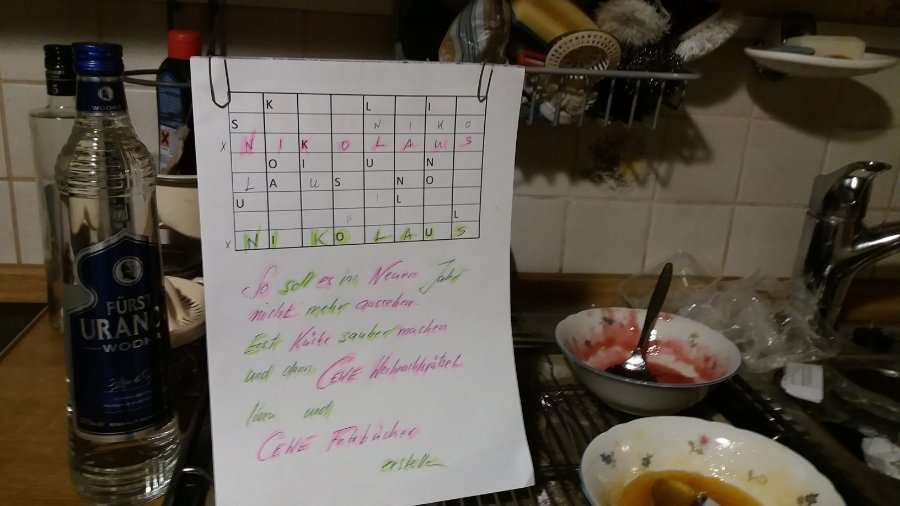 WODKA
FÜRST
URAN
WODK
K L I
S N I K O
x N I K O L A U S
O I U N
L A U S N O
U I L
K L
x N I K O L A U S
So soll es im Neuen Jahr
nicht mehr aussehen
Erst Küche saubermachen
und dann CEWE Weihnachtsrätsel
lösen und
CEWE Fotobücher
erstellen